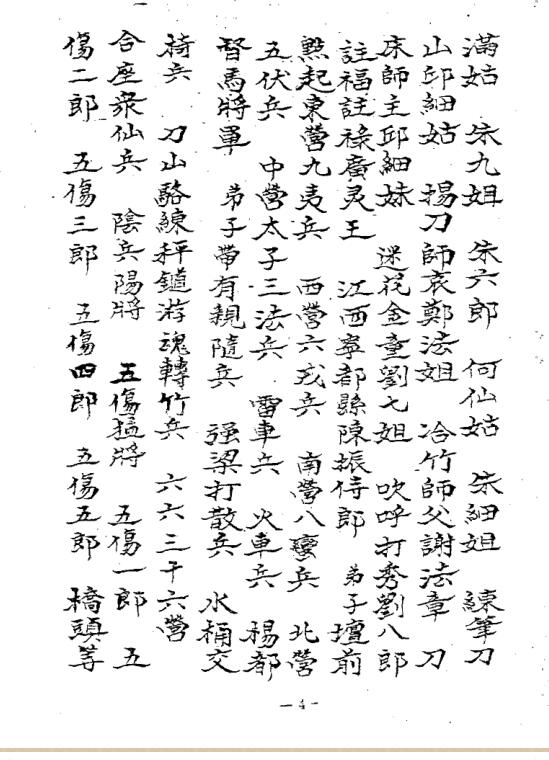 滿姑　朱九姐　朱六郎　何仙姑　朱細姐　練筆刀
山邱細姑　揚刀師哀鄭法姐　冾竹師父謝法章　刀
床師主邱細妹　迷花金童劉七姐　吹呼打秀劉八郎
註福註祿廣灵王　江西寧都縣陳振侍郎　弟子壇前
㸃起東營九夷兵　西營六戎兵　南營八蠻兵　北營
五伏兵　中營太子三法兵　雷車兵　火車兵　楊都
督馬將軍　弟子帶有親隨兵　强梁打散兵　水桶交
椅兵　刀山駱練秤鎚游魂轉竹兵　六六三十六營
合座衆仙兵　陰兵陽將　五傷猛將　五傷一郎　五
傷二郎　五傷三郎　五傷四郎　五傷五郎　橋頭等
-4-